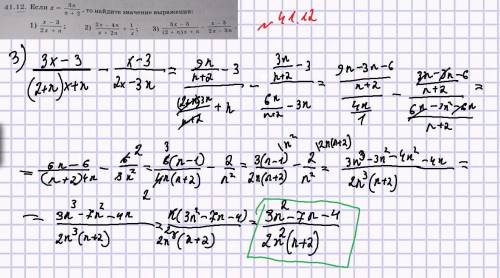 41.12. Если x = 3n/(n + 2), то найдите значение выражения:
1) (x − 3)/(2x + n); 3) (3x − 3)/((2 + n)x + n) − (x − 3)/(2x − 3n)
~ 41.12
3) (3x−3)/((2+n)x+n) − (x−3)/(2x−3n) = (9n/(n+2) − 3)/((2+n)3n/(n+2) + n) − (3n/(n+2) − 3)/(6n/(n+2) − 3n) = ((9n−3n−6)/(n+2))/(4n/1) − (3n−3n−6)/(n+2)/((6n−3n²−6n)/(n+2)) =
= (6n−6)/((n+2)4n) − 6²/3n² = 6³(n−1)/(4n(n+2)) 2 − 2/n² = 3(n−1)/(2n(n+2)) \n² − 2/n² \2n(n+2) = (3n³−3n²−4n²−4n)/(2n³(n+2)) =
= (3n³−7n²−4n)/(2n³(n+2)) = n(3n²−7n−4)/(2n³(n+2)) = (3n²−7n−4)/(2n²(n+2))